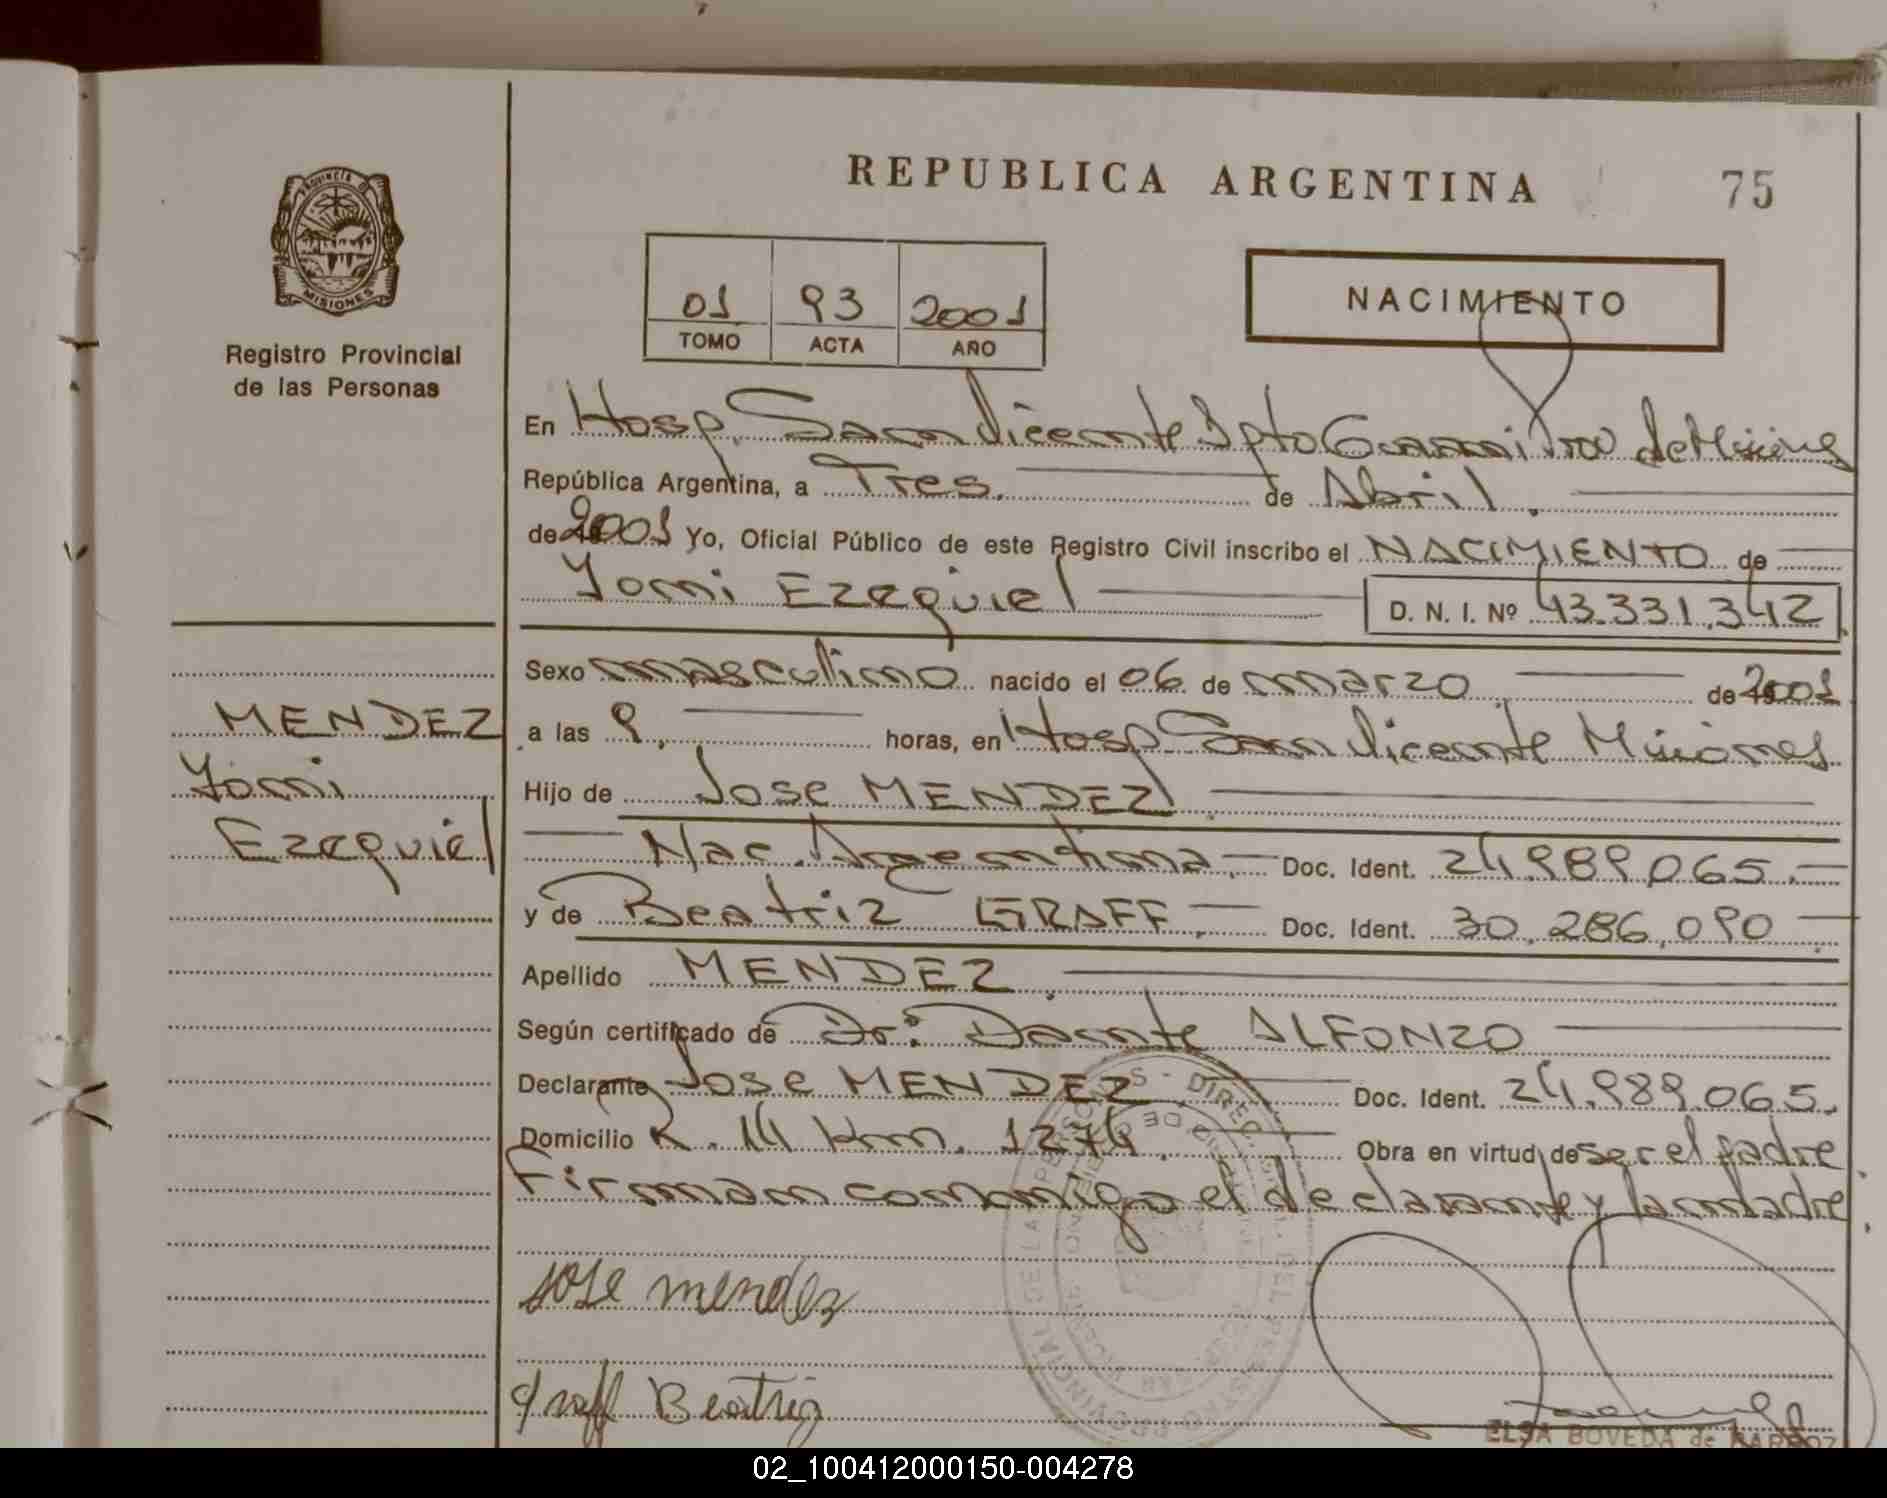 REPUBLICA ARGENTINA
75
PROVINCIA DE
MISIONES
Registro Provincial
de las Personas
01 93 2001
TOMO ACTA AÑO
NACIMIENTO
En Hosp. San Vicente Dpto Guaraní Prov de Misiones
República Argentina, a Tres. de Abril.
de 2001 Yo, Oficial Público de este Registro Civil inscribo el NACIMIENTO de
Yoni Ezequiel D. N. I. Nº 43.331.342
Sexo masculino nacido el 06 de marzo de 2001
a las 9. horas, en Hosp San Vicente Misiones
Hijo de Jose MENDEZ
Nac. Argentina. Doc. Ident. 24.989.065.
y de Beatriz GRAFF. Doc. Ident. 30.286.090
Apellido MENDEZ.
Según certificado de Dr: Dante ALFONZO
Declarante Jose MENDEZ Doc. Ident. 24.989.065.
Domicilio R. 14 Km. 1274. Obra en virtud de ser el padre
Firman conmigo el declarante y la madre.
MENDEZ
Yoni
Ezequiel
Jose mendez
Graff Beatriz
ELSA BOVEDA de
02_100412000150-004278